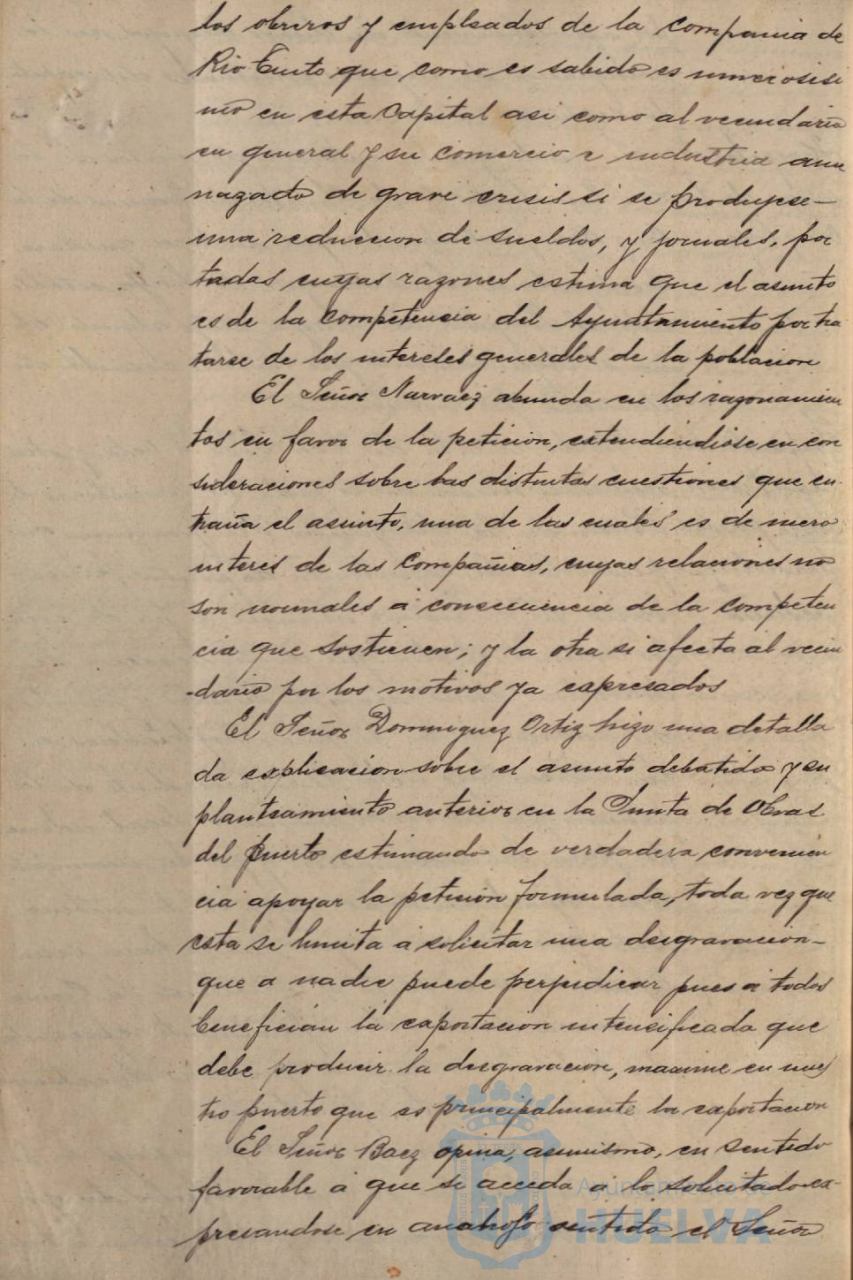 los obreros y empleados de la compañia de
Rio Tinto que como es sabido es numerosisi
mo en esta Capital asi como al vecindario
en general y su comercio e industria ame
nazado de grave crisis si se produjese-
una reduccion de sueldos, y jornales, por
todas cuyas razones estima que el asunto
es de la competencia del Ayuntamiento por tra
tarse de los intereses generales de la poblacion
El Señor Narvaez abunda en los razonamien
tos en favor de la peticion, extendiendose en con
sideraciones sobre las distintas cuestiones que en
traña el asunto, una de las cuales es de mero
interes de las Compañias, cuyas relaciones no
son normales a consecuencia de la competen
cia que sostienen; y la otra si afecta al vecin
-dario por los motivos ya expresados
El Señor Dominguez Ortiz hizo una detalla
da explicacion sobre el asunto debatido y su
planteamiento anterior en la Junta de Obras
del puerto estimando de verdadera convenien
cia apoyar la peticion formulada, toda vez que
esta se limita a solicitar una desgravacion-
que a nadie puede perjudicar pues a todos
benefician la exportacion intensificada que
debe producir la desgravacion, maxime en nues
tro puerto que es principalmente la exportacion
El Señor Baez opina, asimismo, en sentido
favorable a que se acceda a lo solicitado ex-
presandose en analogo sentido el Señor
Ayuntamiento de
HUELVA